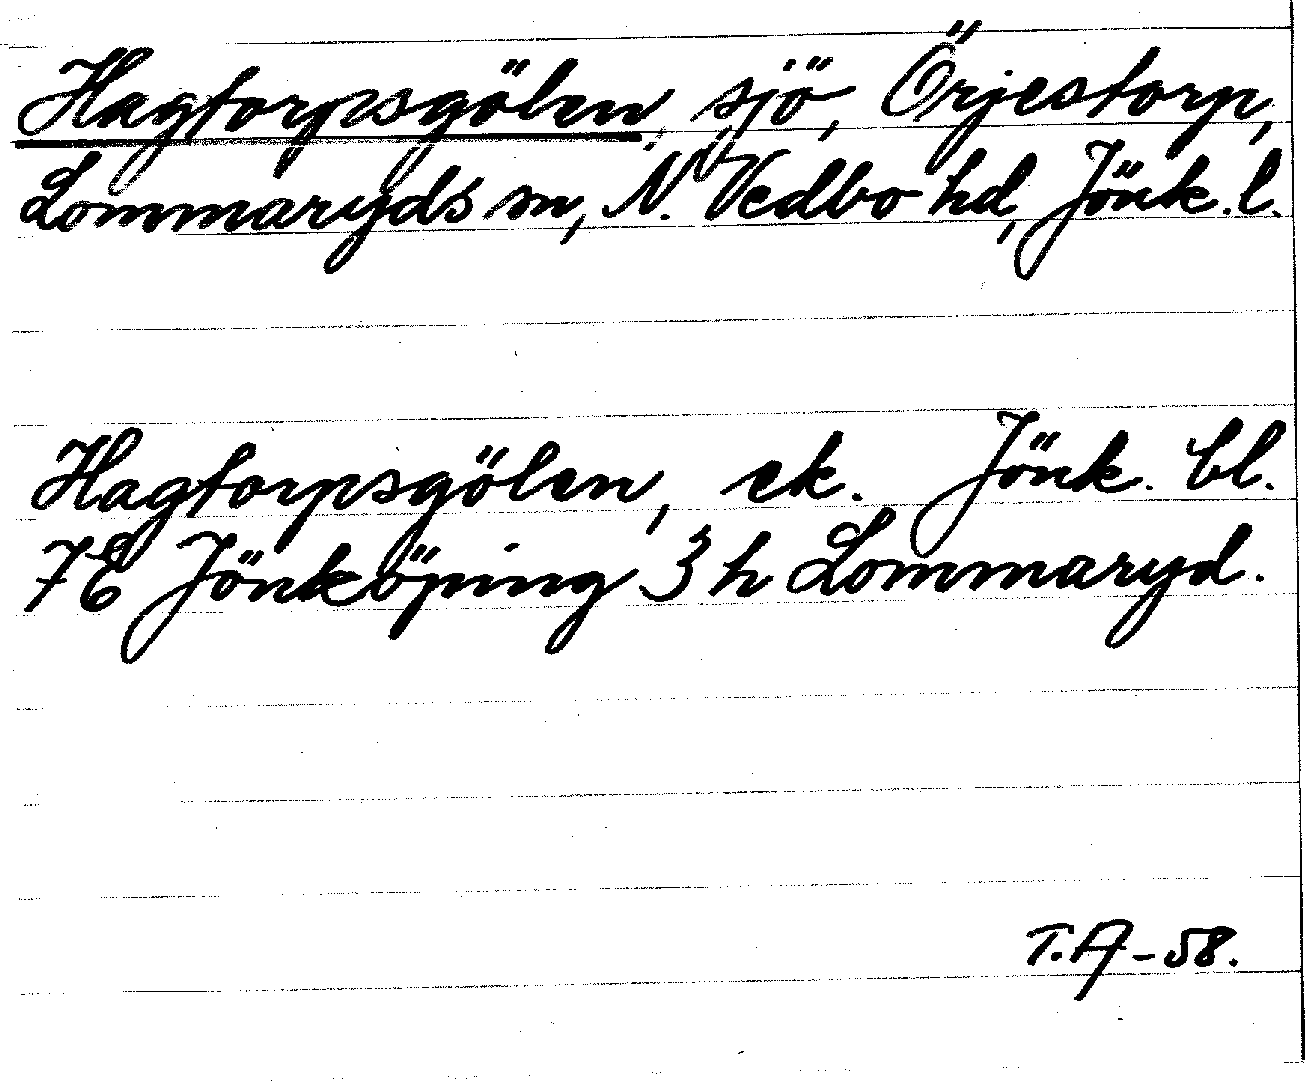 Hagtorpsgölen, sjö, Örjestorp,
Lommaryds sn, N. Vedbo hd, Jönk. l.
Hagtorpsgölen, ek. Jönk. bl.
7E Jönköping 3 h Lommaryd.
T.A-58.